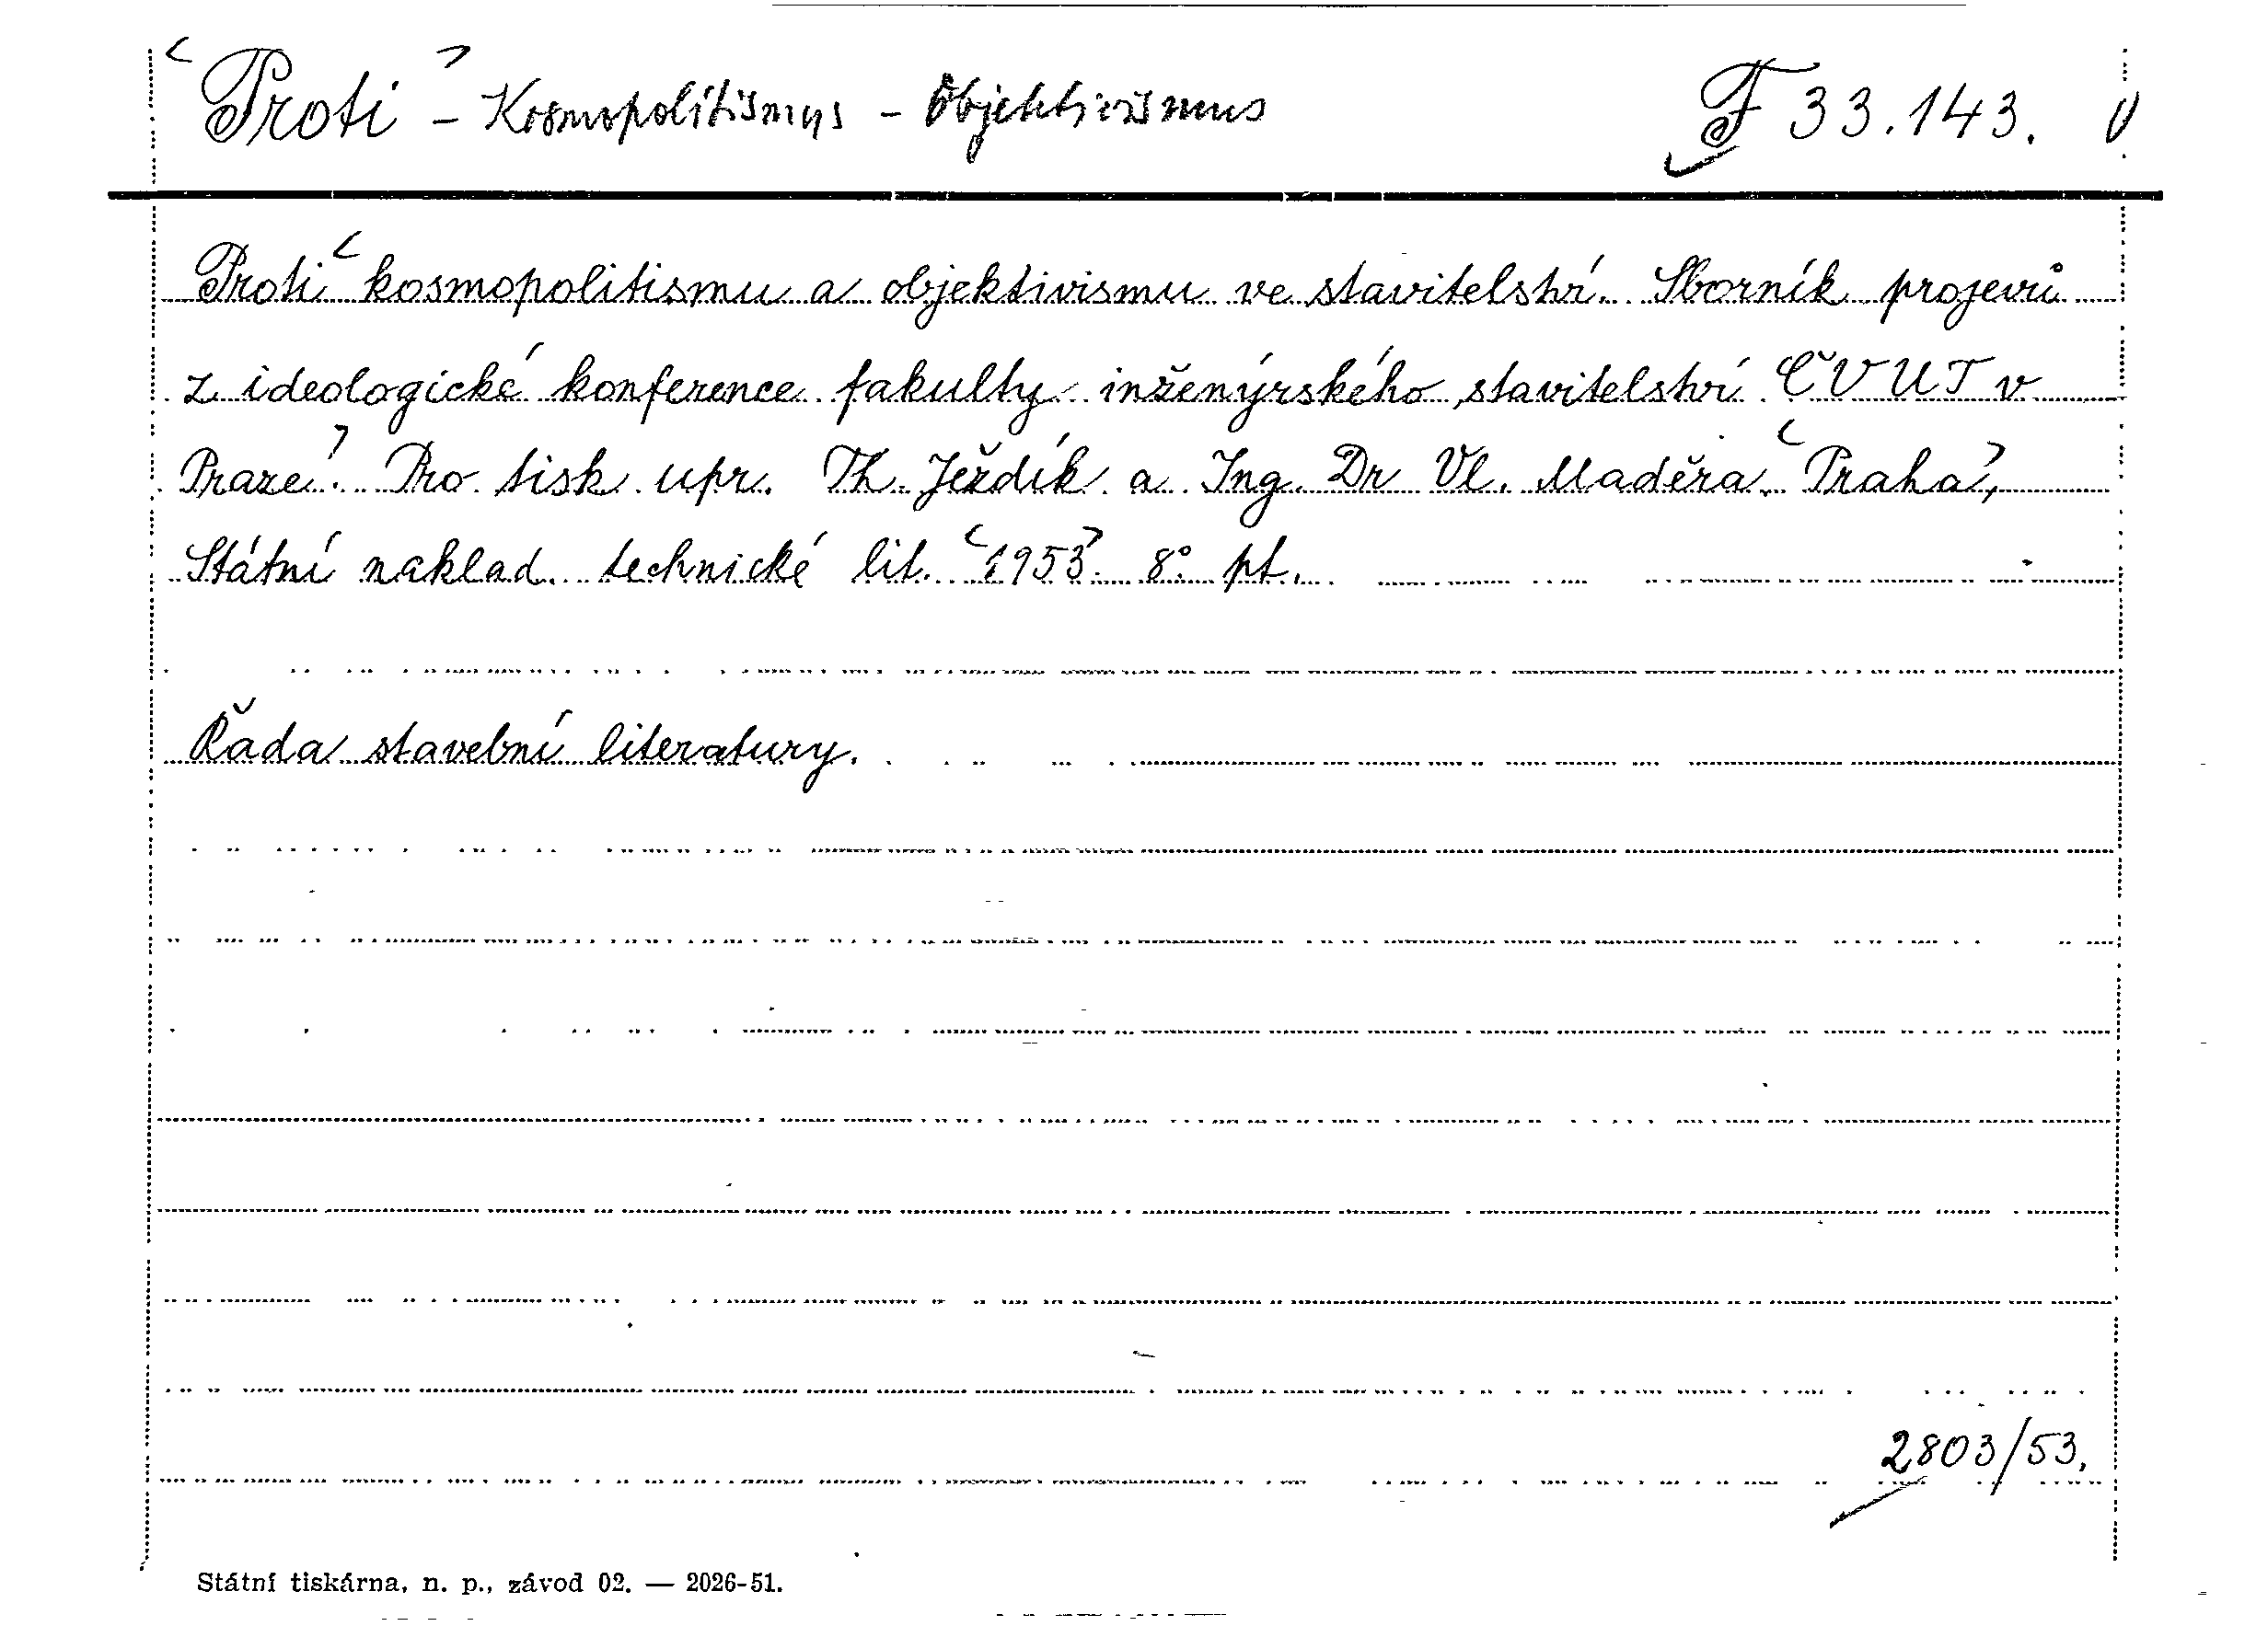 Proti - Kosmopolitismus - Objektivismus F 33.143.
Proti kosmopolitismu a objektivismu ve stavitelství. Sborník projevů
z ideologické konference fakulty inženýrského stavitelství ČVUT v
Praze. Pro tisk upr. Th. Ježdík a Ing. Dr Vl. Maděra. Praha,
Státní naklad. technické lit. 1953. 8° pt.
Řada stavební literatury.
2803/53.
Státní tiskárna, n. p., závod 02. — 2026-51.